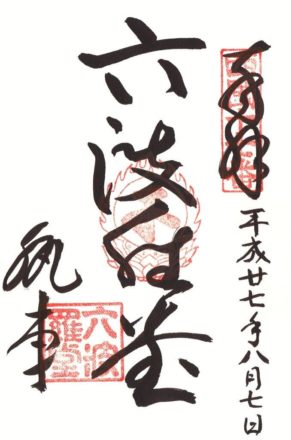 奉拝
平成廿七年八月七日
六波羅堂
執事
六波
羅堂